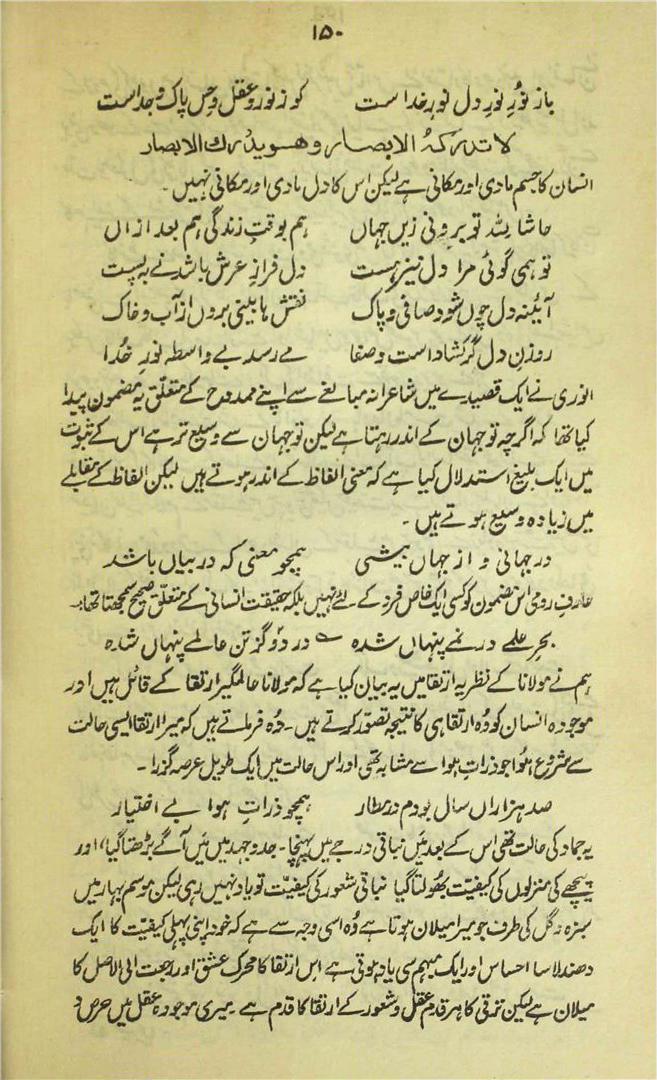 ۱۵۰
باز نورِ نورِ دل نورِ خداست کو ز نورِ عقل و حِس پاک و جداست
لا تدرکہُ الابصار وھو یدرک الابصار
انسان کا جسم مادی اور مکانی ہے لیکن اس کا دل مادی اور مکانی نہیں۔
حاشا للہ تو برونی زیں جہاں ہم بوقتِ زندگی ہم بعد ازاں
تو ہمی گوئی مرا دل نیز ہست دل فرازِ عرش باشد نے بہ پست
آئینہ دل چوں شود صافی و پاک نقش ہا بینی بروں از آب و خاک
روزنِ دل گر کشاد است و صفا مے رسد بے واسطہ نورِ خُدا
انوری نے ایک قصیدے میں شاعرانہ مبالغے سے اپنے ممدوح کے متعلق یہ مضمون پیدا
کیا تھا کہ اگرچہ تو جہان کے اندر رہتا ہے لیکن تو جہان سے وسیع تر ہے اس کے ثبوت
میں ایک بلیغ استدلال کیا ہے کہ معنی الفاظ کے اندر ہوتے ہیں لیکن الفاظ کے مقابلے
میں زیادہ وسیع ہوتے ہیں۔
در جہانی و از جہاں بیشی ہمچو معنی کہ در بیاں باشد
عارفِ رومی اس مضمون کو کسی ایک خاص فرد کے لئے نہیں بلکہ حقیقت انسانی کے متعلق صحیح سمجھتا تھا:۔
بحرِ علمے در نمے پنہاں شدہ در دو گز تن عالمے پنہاں شدہ
ہم نے مولانا کے نظریہ ارتقا میں یہ بیان کیا ہے کہ مولانا عالمگیر ارتقا کے قائل ہیں اور
موجودہ انسان کو وُہ ارتقا ہی کا نتیجہ تصوّر کرتے ہیں۔ وُہ فرماتے ہیں کہ میرا ارتقا ایسی حالت
سے شروع ہوُا جو ذراتِ ہوا سے مشابہ تھی اور اس حالت میں ایک طویل عرصہ گزرا۔
صد ہزاراں سال بودم در مطار ہمچو ذراتِ ہوا بے اختیار
یہ جماد کی حالت تھی اس کے بعد میں نباتی درجے میں پہنچا۔ جد و جہد میں مَیں آگے بڑھتا گیا، اور
پیچھے کی منزلوں کی کیفیّت بھُولتا گیا نباتی شعور کی کیفیّت تو یاد نہیں رہی لیکن موسم بہار میں
سبزہ و گل کی طرف جو میرا میلان ہوتا ہے وُہ اسی وجہ سے ہے کہ خود اپنی پہلی کیفیّت کا ایک
دھندلا سا احساس اور ایک مبہم سی یاد ہوتی ہے اس ارتقا کا محرک عشق اور رجعت الی الاصل کا
میلان ہے لیکن ترقی کا ہر قدم عقل و شعور کے ارتقا کا قدم ہے۔ میری موجودہ عقل میں حرص و